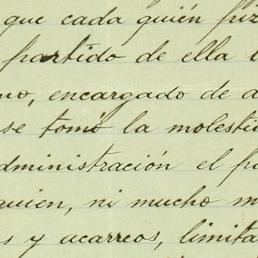 que cada quién hiz
partido de ella l
no, encargado de a
se tomó la molesti
administración el p
quien, ni mucho m
s y acarreos, limita